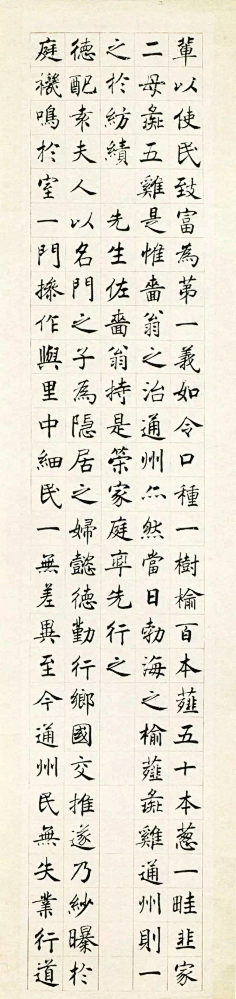 輩以使民致富為第一義如令口種一樹榆百本薤五十本葱一畦韭家
二母彘五雞是惟嗇翁之治通州亦然當日勃海之榆薤彘雞通州則一
之於紡績　先生佐嗇翁持是策家庭率先行之
德配袁夫人以名門之子為隱居之婦懿德勤行鄉國交推遂乃紗曝於
庭機鳴於室一門操作與里中細民一無差異至今通州民無失業行道